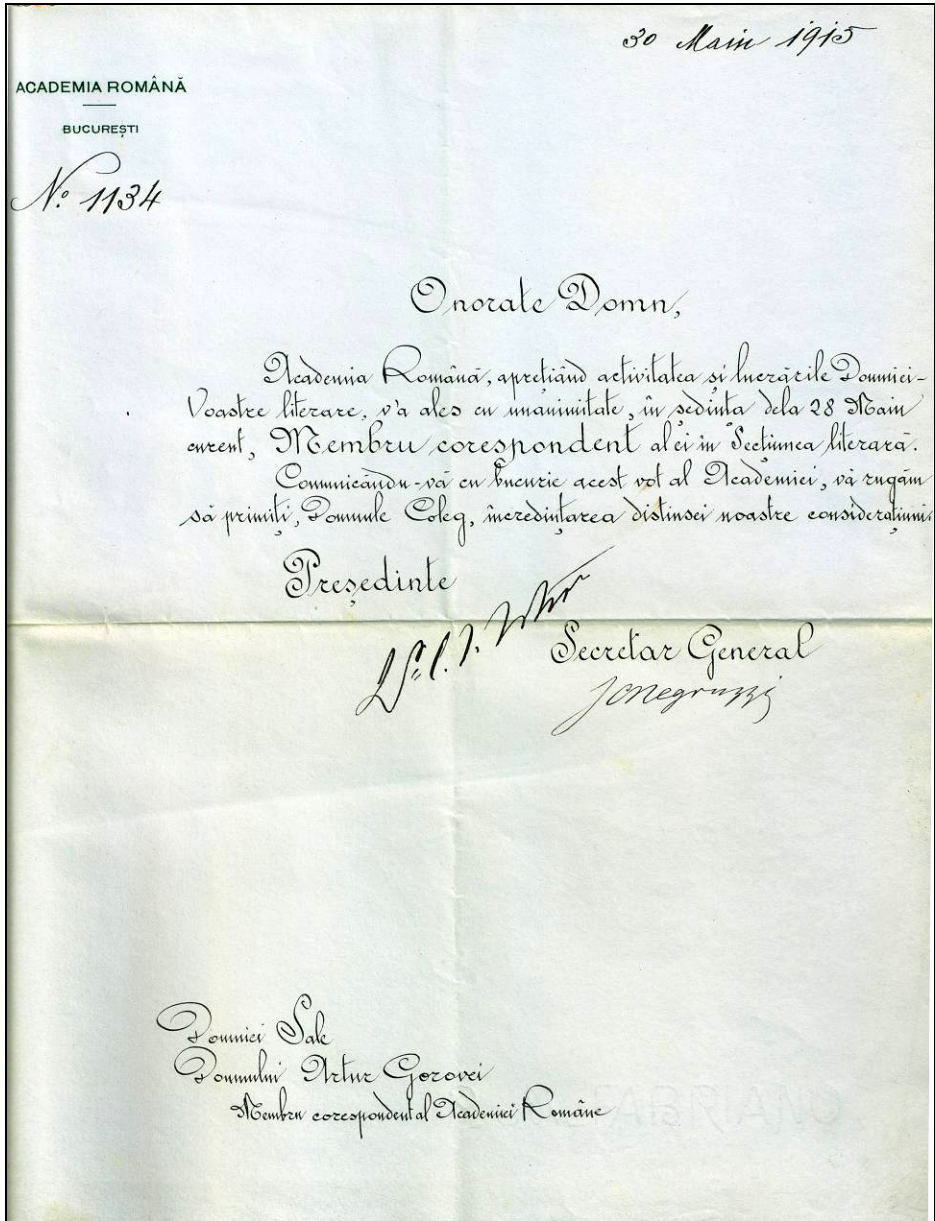 30 Maiu 1915
ACADEMIA ROMÂNĂ
BUCUREȘTI
No. 1134
Onorate Domn,
Academia Română, aprețiând activitatea și lucrările Domniei-
Voastre literare, v'a ales cu unanimitate, în ședința dela 28 Maiu
curent, Membru corespondent al ei în Secțiunea literară.
Comunicându-vă cu bucurie acest vot al Academiei, vă rugăm
să primiți, Domnule Coleg, încredințarea distinsei noastre considerațiuni.
Președinte
Secretar General
I C Negruzzi
Domniei Sale
Domnului Artur Gorovei
Membru corespondent al Academiei Române